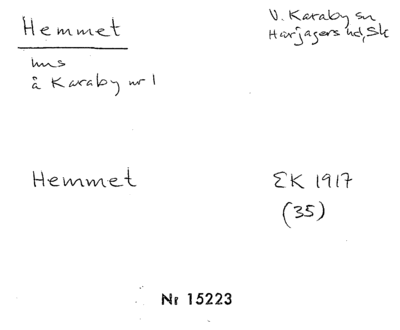 Hemmet
V. Karaby sn
Harjagers hd, Sk
hus
å Karaby nr 1
Hemmet
EK 1917
(35)
Nr 15223